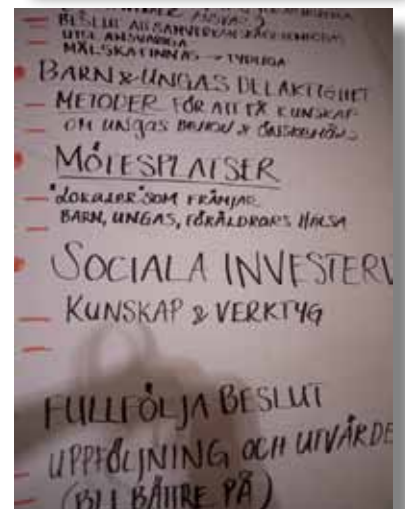 BESLUT
UTSE ANSVARIGA
MÅL SKA FINNAS → TYDLIGA
• BARN & UNGAS DELAKTIGHET
— METODER FÖR ATT FÅ KUNSKAP
OM UNGAS BEHOV & ÖNSKEMÅL
• MÖTESPLATSER
— "LOKALER" SOM FRÄMJAR
BARN, UNGAS, FÖRÄLDRARS HÄLSA
• SOCIALA INVESTER
— KUNSKAP & VERKTYG
FULLFÖLJA BESLUT
UPPFÖLJNING OCH UTVÄRDE
— (BLI BÄTTRE PÅ)